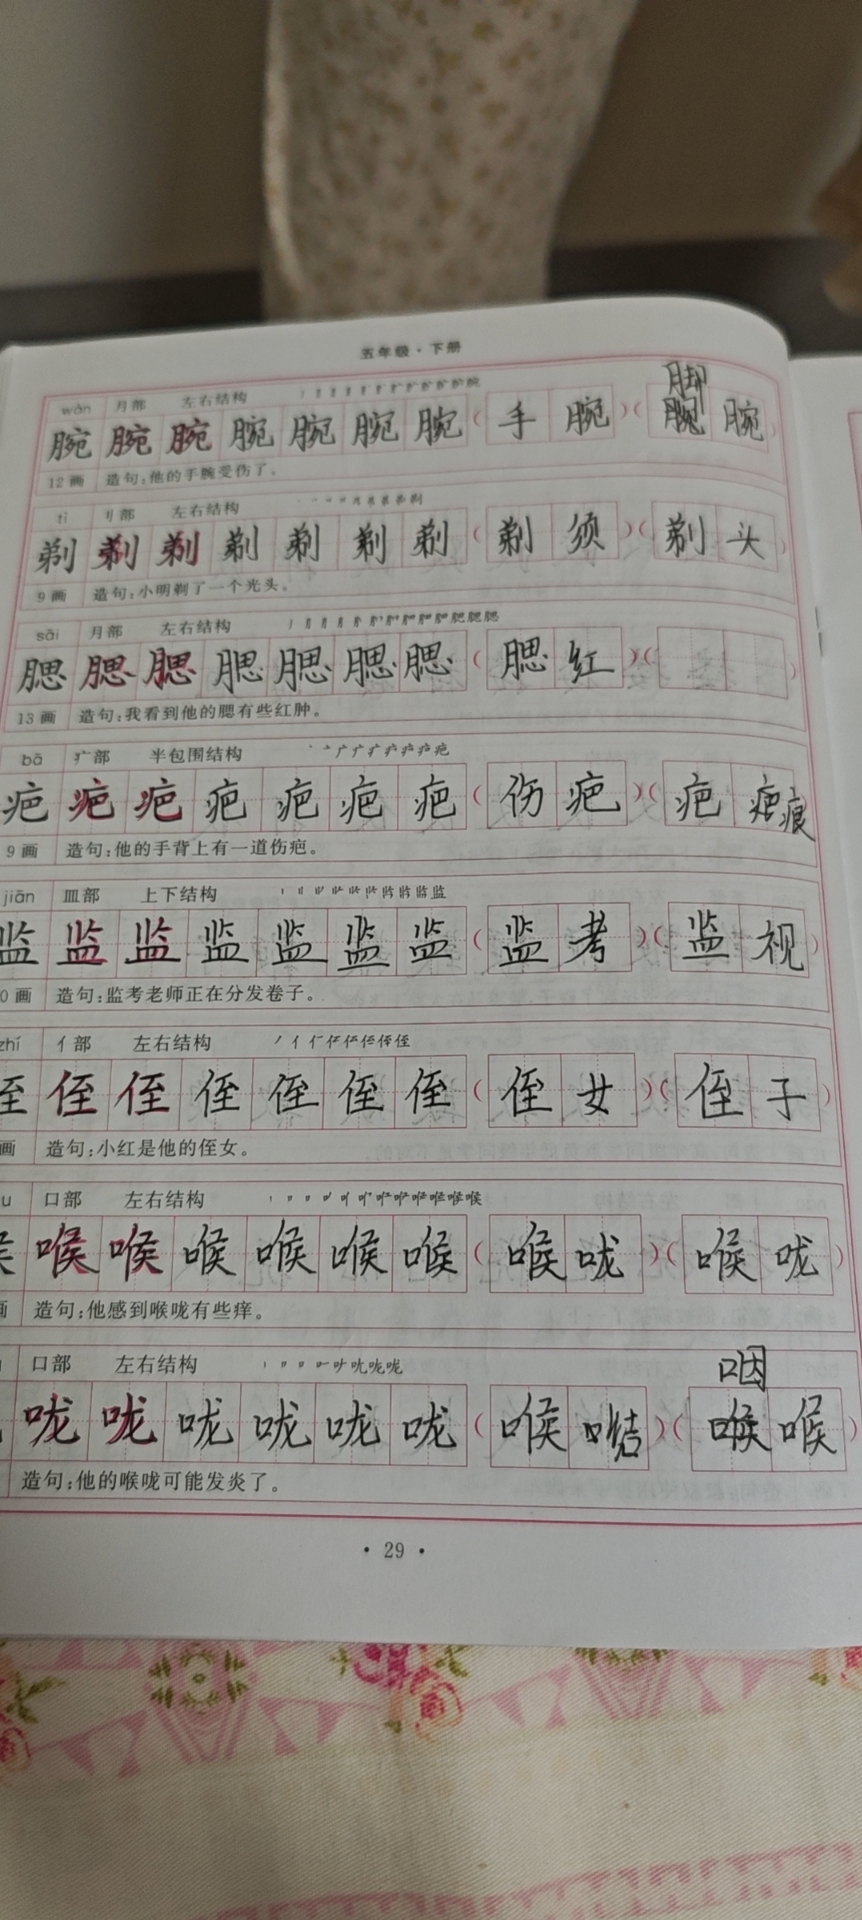 五年级·下册
wàn 月部 左右结构
腕 腕 腕 腕 腕 腕 腕 (手 腕)(脚 腕)
12画 造句:他的手腕受伤了。
tì 刂部 左右结构
剃 剃 剃 剃 剃 剃 剃 (剃 须)(剃 头)
9画 造句:小明剃了一个光头。
sāi 月部 左右结构
腮 腮 腮 腮 腮 腮 腮 (腮 红)( )
13画 造句:我看到他的腮有些红肿。
bā 疒部 半包围结构
疤 疤 疤 疤 疤 疤 疤 (伤 疤)(疤 痕)
9画 造句:他的手背上有一道伤疤。
jiān 皿部 上下结构
监 监 监 监 监 监 监 (监 考)(监 视)
0画 造句:监考老师正在分发卷子。
zhí 亻部 左右结构
侄 侄 侄 侄 侄 侄 侄 (侄 女)(侄 子)
画 造句:小红是他的侄女。
u 口部 左右结构
喉 喉 喉 喉 喉 喉 (喉 咙)(喉 咙)
画 造句:他感到喉咙有些痒。
口部 左右结构
咽
咙 咙 咙 咙 咙 咙 (喉 结)(喉 喉)
造句:他的喉咙可能发炎了。
·29·